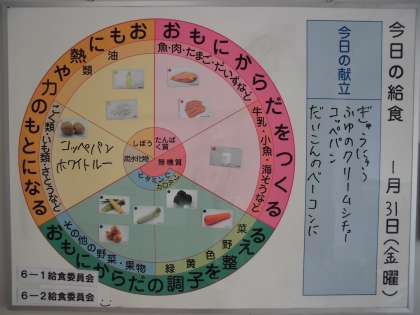 今日の給食 1月31日(金曜)
今日の献立
ぎゅうにゅう
ふゆのクリームシチュー
コッペパン
だいこんのベーコンに
おもにからだをつくる
魚・肉・たまご・だいずなど
牛乳・小魚・海そうなど
おもにからだの調子を整える
緑黄色野菜
その他の野菜・果物
おもに熱や力のもとになる
油類
こく類・いも類・さとうなど
コッペパン
ホワイトルー
しぼう
たんぱく質
炭水化物
無機質
ビタミンC
カロテン
6-1給食委員会
6-2給食委員会